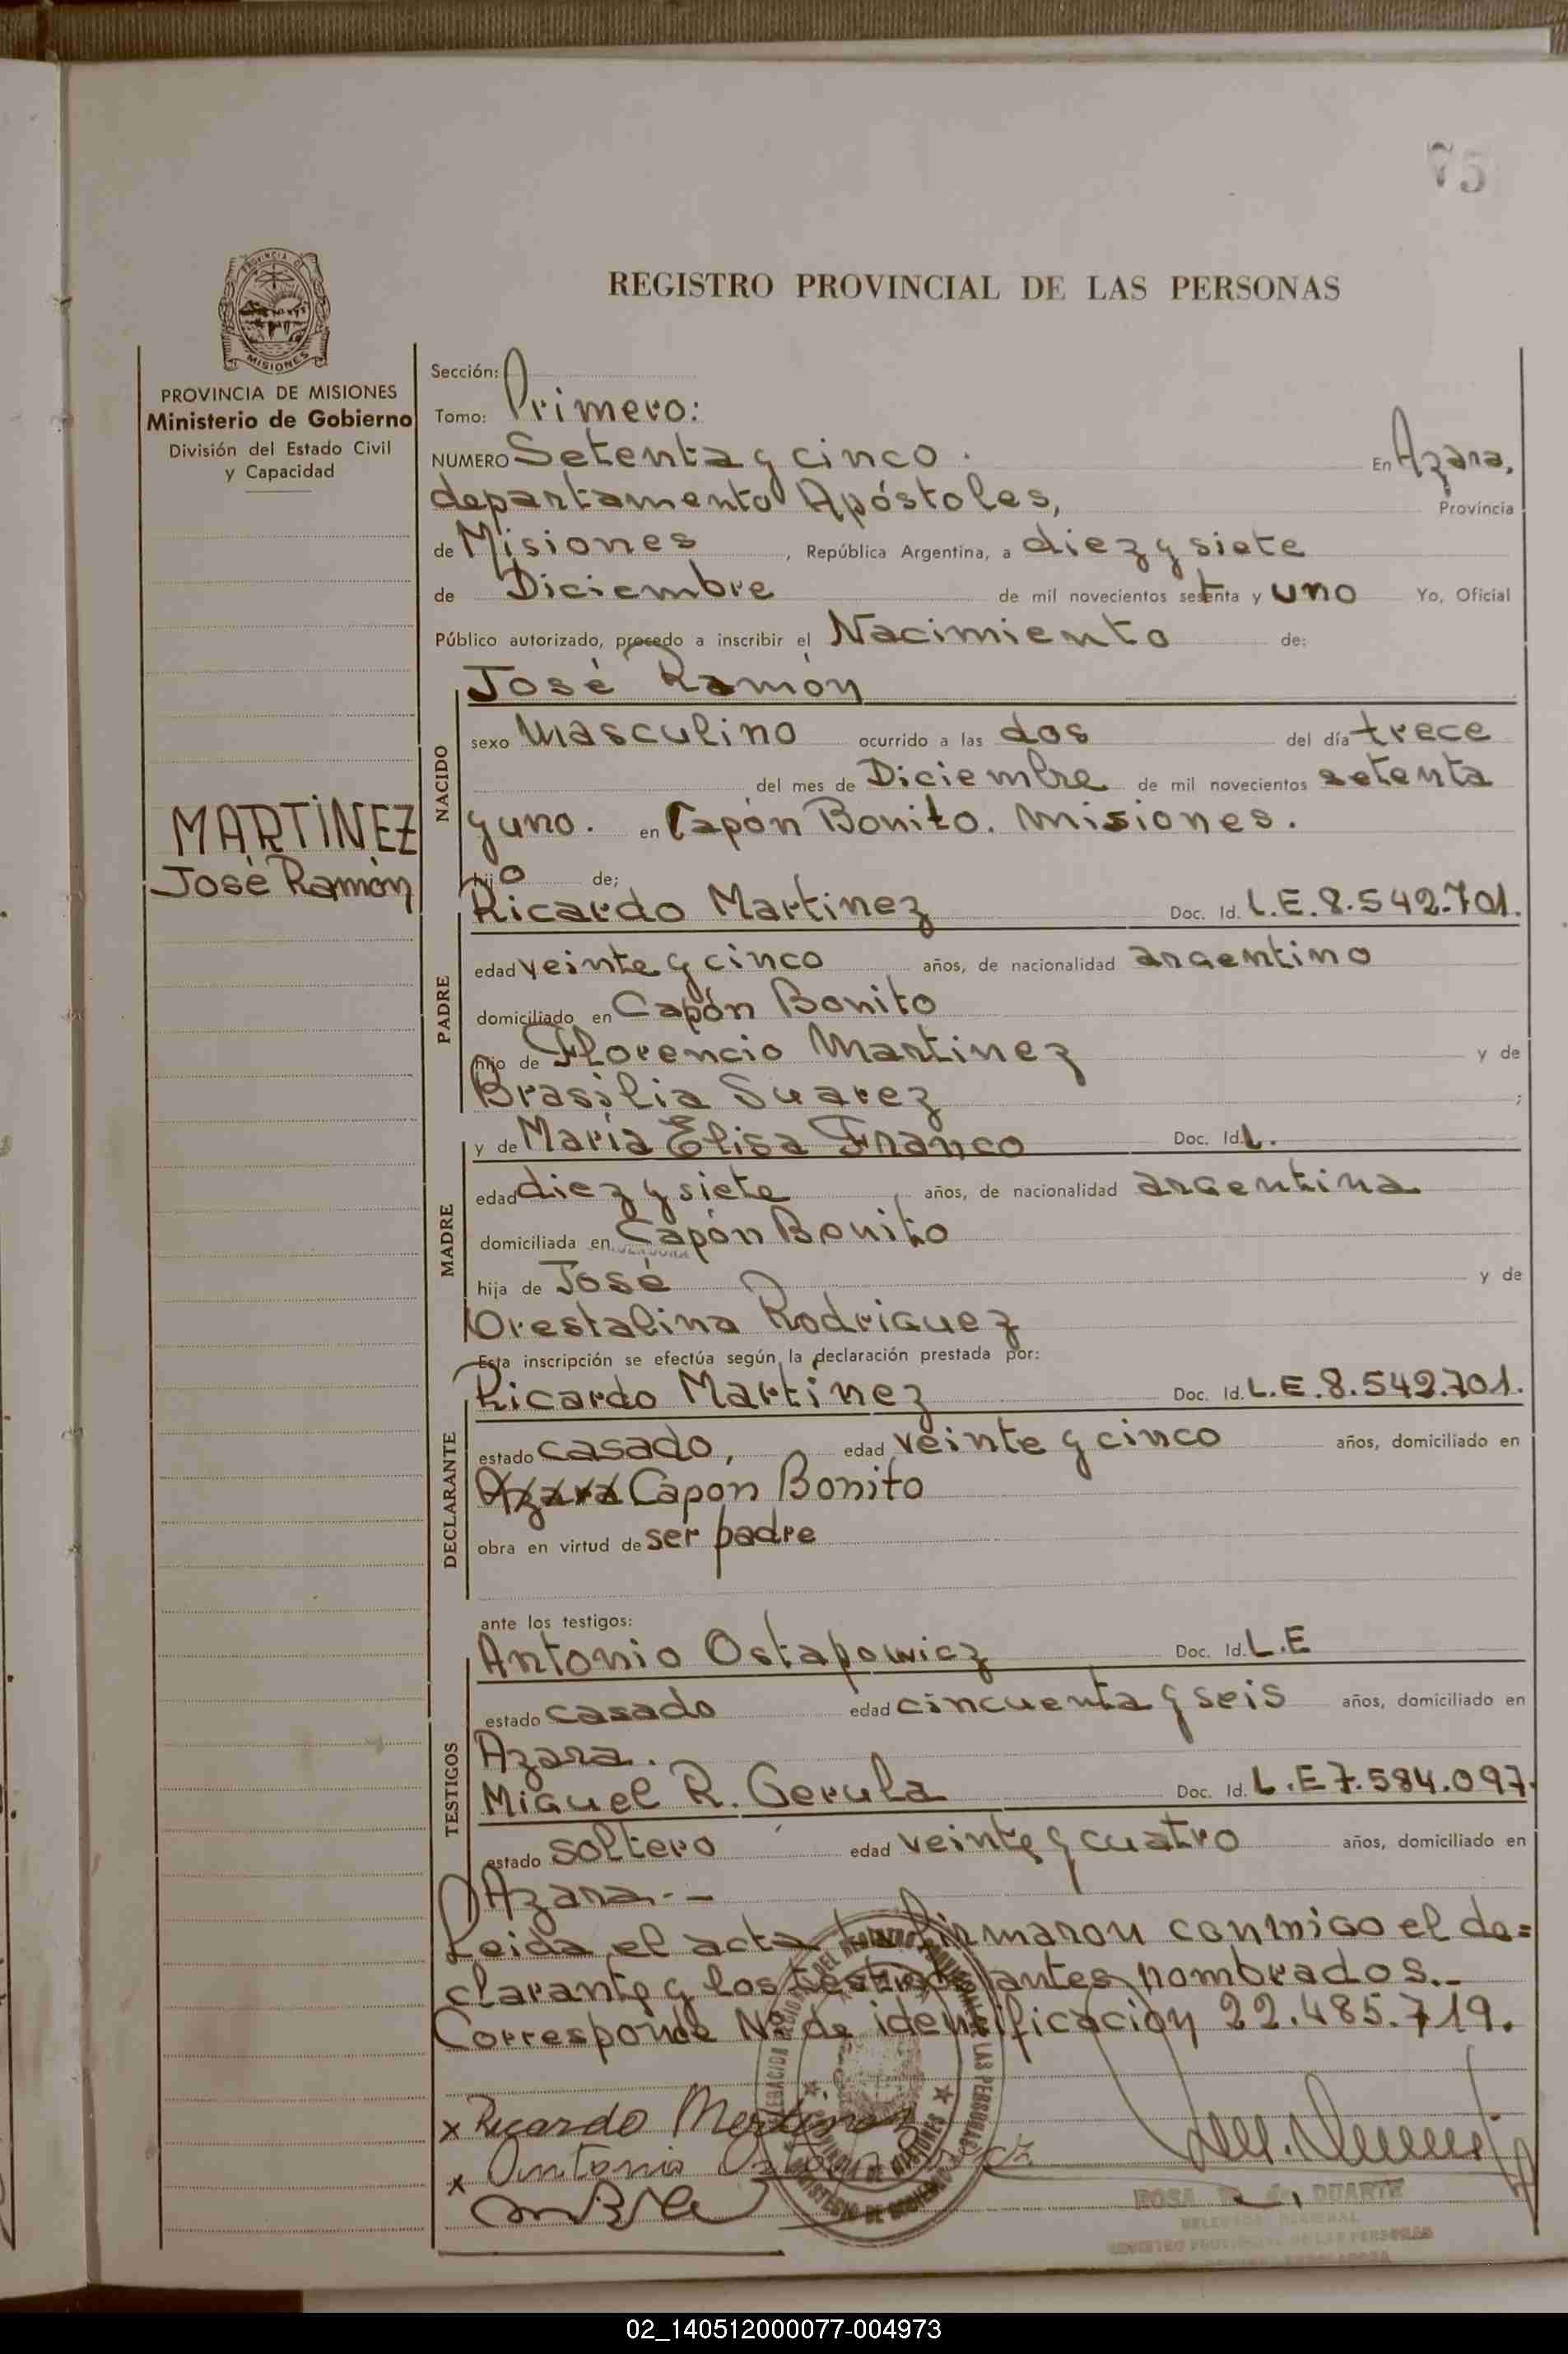 75
PROVINCIA DE
MISIONES
REGISTRO PROVINCIAL DE LAS PERSONAS
PROVINCIA DE MISIONES
Ministerio de Gobierno
División del Estado Civil
y Capacidad
MARTINEZ
José Ramón
Sección:
Tomo: Primero:
NUMERO Setenta y cinco. En Azara,
departamento Apóstoles, Provincia
de Misiones, República Argentina, a diez y siete
de Diciembre de mil novecientos setenta y uno Yo, Oficial
Público autorizado, procedo a inscribir el Nacimiento de:
NACIDO
José Ramón
sexo Masculino ocurrido a las dos del día trece
del mes de Diciembre de mil novecientos setenta
y uno. en Capón Bonito. Misiones.
hijo de;
PADRE
Ricardo Martinez Doc. Id. L.E.8.542.701.
edad veinte y cinco años, de nacionalidad argentino
domiciliado en Capón Bonito
hijo de Florencio Martinez y de
Brasilia Suarez ;
MADRE
y de María Elisa Franco Doc. Id. L.
edad diez y siete años, de nacionalidad argentina
domiciliada en Capón Bonito
hija de José y de
Orestalina Rodriguez
Esta inscripción se efectúa según la declaración prestada por:
DECLARANTE
Ricardo Martinez Doc. Id. L.E.8.542.701.
estado casado, edad veinte y cinco años, domiciliado en
Azara Capon Bonito
obra en virtud de ser padre
ante los testigos:
TESTIGOS
Antonio Ostapowicz Doc. Id. L.E
estado casado edad cincuenta y seis años, domiciliado en
Azara.
Miguel R. Gerula Doc. Id. L.E 7.584.097.
estado soltero edad veinte y cuatro años, domiciliado en
Azara.--
Leida el acta la firmaron conmigo el de=
clarante y los testigos antes nombrados.-
Corresponde Nº de identificación 22.485.719.
x Ricardo Martinez
x Antonio Ostapowicz
ROSA DUARTE
REGISTRO PROVINCIAL DE LAS PERSONAS
02_140512000077-004973